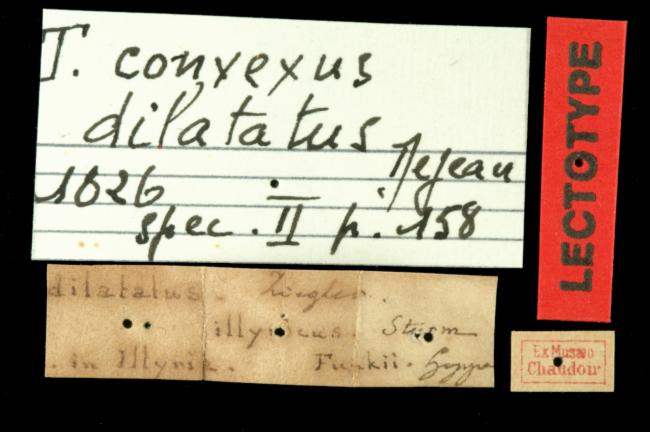 T. convexus
dilatatus
Dejean
1826
spec. II p. 158
LECTOTYPE
dilatatus. Ziegler.
illyricus. Sturm
. in Illyria. Funkii. Hoppe
Ex Musæo
Chaudoir